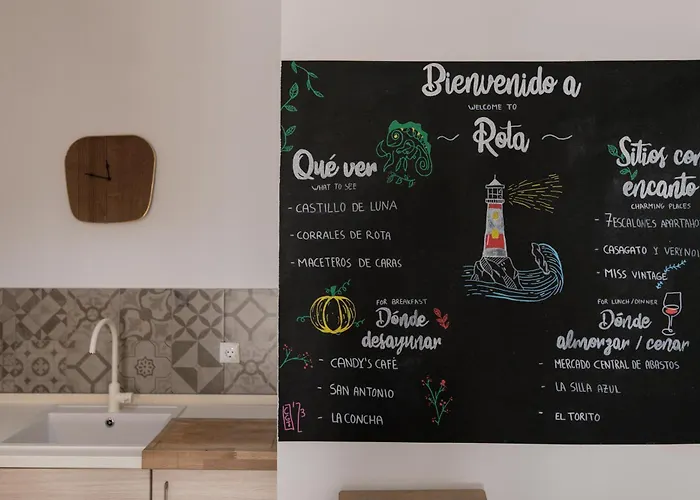 Bienvenido a
WELCOME TO
Rota
Qué ver
WHAT TO SEE
- CASTILLO DE LUNA
- CORRALES DE ROTA
- MACETEROS DE CARAS
FOR BREAKFAST
Dónde
desayunar
- CANDY'S CAFÈ
- SAN ANTONIO
- LA CONCHA
Sitios con
encanto
CHARMING PLACES
- 7ESCALONES
- CASAGATO Y
- MISS VINTAGE
FOR LUNCH/DINNER
Dónde
almorzar / cenar
- MERCADO CENTRAL DE ABASTOS
- LA SILLA AZUL
- EL TORITO